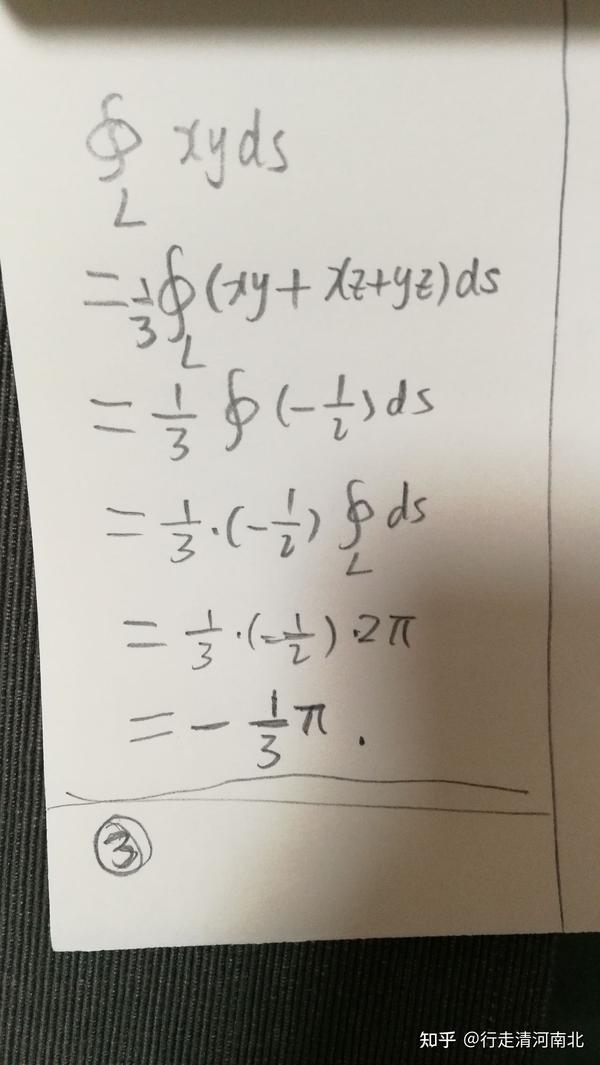 ∮_L xyds
= 1/3 ∮_L (xy + xz+yz)ds
= 1/3 ∮ (-1/2) ds
= 1/3 · (-1/2) ∮_L ds
= 1/3 · (-1/2) · 2π
= - 1/3 π .
③
知乎 @行走清河南北